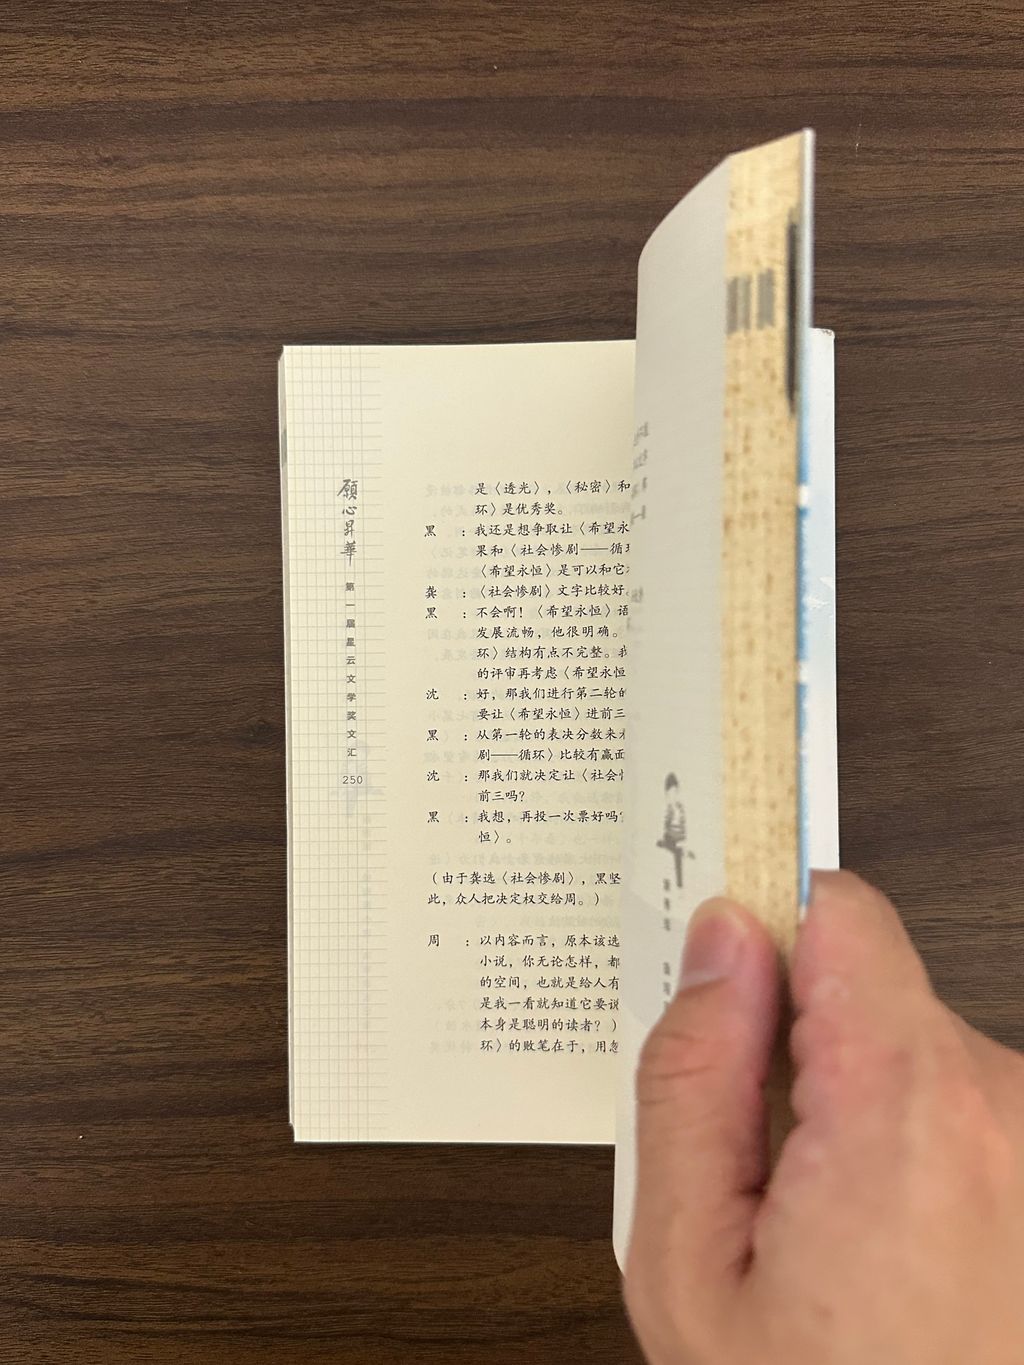 愿心昇華
第一届星云文学奖文汇
250
是〈透光〉，〈秘密〉和
环〉是优秀奖。
黑　：我还是想争取让〈希望永
果和〈社会惨剧——循环
〈希望永恒〉是可以和它
龚　：〈社会惨剧〉文字比较好
黑　：不会啊！〈希望永恒〉语
发展流畅，他很明确。
环〉结构有点不完整。我
的评审再考虑〈希望永恒
沈　：好，那我们进行第二轮的
要让〈希望永恒〉进前三
黑　：从第一轮的表决分数来
剧——循环〉比较有赢面
沈　：那我们就决定让〈社会
前三吗？
黑　：我想，再投一次票好吗？
恒〉。
（由于龚选〈社会惨剧〉，黑坚
此，众人把决定权交给周。）
周　：以内容而言，原本该选
小说，你无论怎样，都
的空间，也就是给人有
是我一看就知道它要说
本身是聪明的读者？）
环〉的败笔在于，用忽